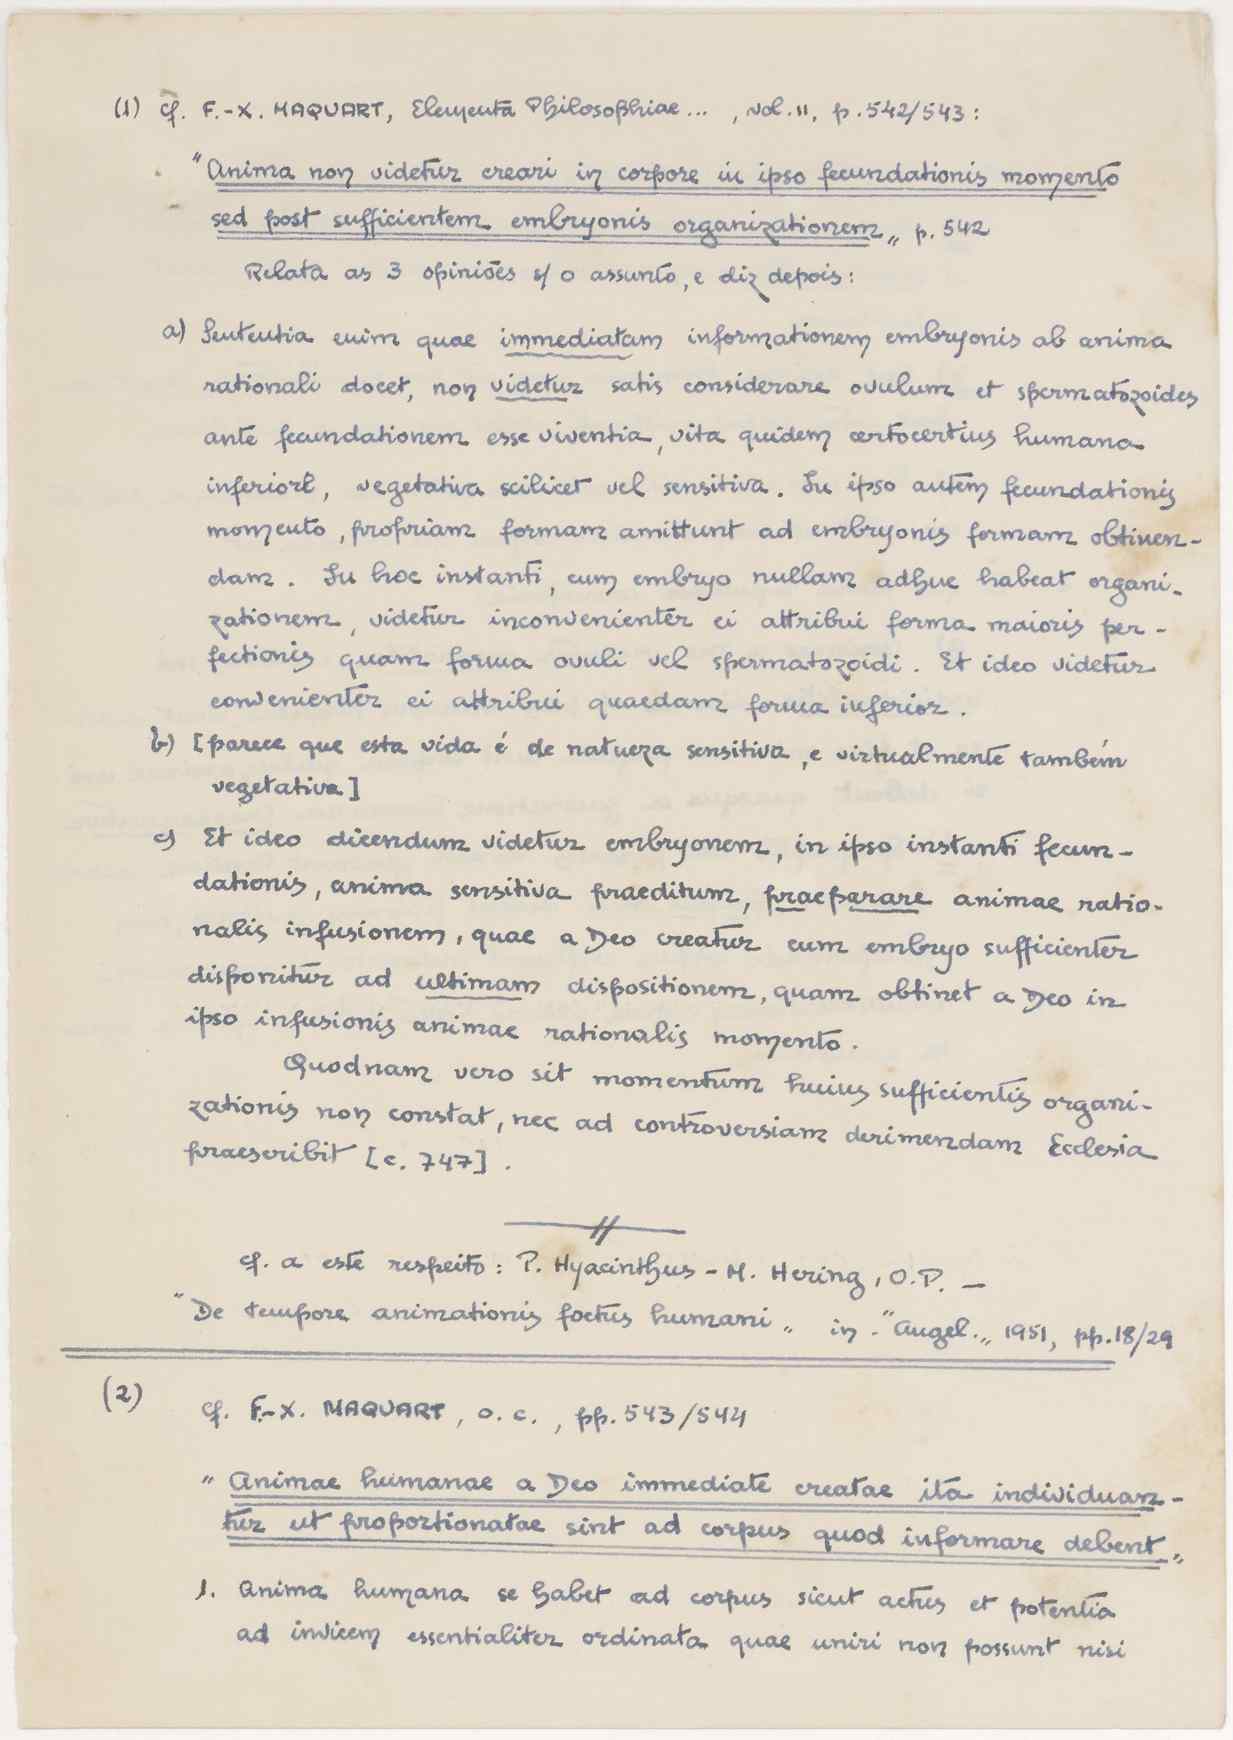 (1) cf. F.-X. MAQUART, Elementa Philosophiae ... , vol. II, p. 542/543 :
"Anima non videtur creari in corpore in ipso fecundationis momento
sed post sufficientem embryonis organizationem„ p. 542
Relata as 3 opiniões s/ o assunto, e diz depois :
a) Sententia enim quae immediatam informationem embryonis ab anima
rationali docet, non videtur satis considerare ovulum et spermatozoides
ante fecundationem esse viventia, vita quidem certocertius humana
inferiori, vegetativa scilicet vel sensitiva. In ipso autem fecundationis
momento, propriam formam amittunt ad embryonis formam obtinen-
dam. In hoc instanti, cum embryo nullam adhuc habeat organi-
zationem, videtur inconvenienter ei attribui forma maioris per-
fectionis quam forma ovuli vel spermatozoidi. Et ideo videtur
convenienter ei attribui quaedam forma inferior.
b) [parece que esta vida é de natueza sensitiva, e virtualmente também
vegetativa]
c) Et ideo dicendum videtur embryonem, in ipso instanti fecun-
dationis, anima sensitiva praeditum, praeparare animae ratio-
nalis infusionem, quae a Deo creatur cum embryo sufficienter
disponitur ad ultimam dispositionem, quam obtinet a Deo in
ipso infusionis animae rationalis momento.
Quodnam vero sit momentum huius sufficientis organi-
zationis non constat, nec ad controversiam derimendam Ecclesia
praescribit [c. 747].
cf. a este respeito : P. Hyacinthus - M. Hering, O.P. —
"De tempore animationis foetus humani„ in "Angel.„ 1951, pp. 18/29
(2) cf. F.-X. MAQUART, o. c., pp. 543/544
"Animae humanae a Deo immediate creatae ita individuan-
tur ut proportionatae sint ad corpus quod informare debent„
1. Anima humana se habet ad corpus sicut actus et potentia
ad invicem essentialiter ordinata quae uniri non possunt nisi